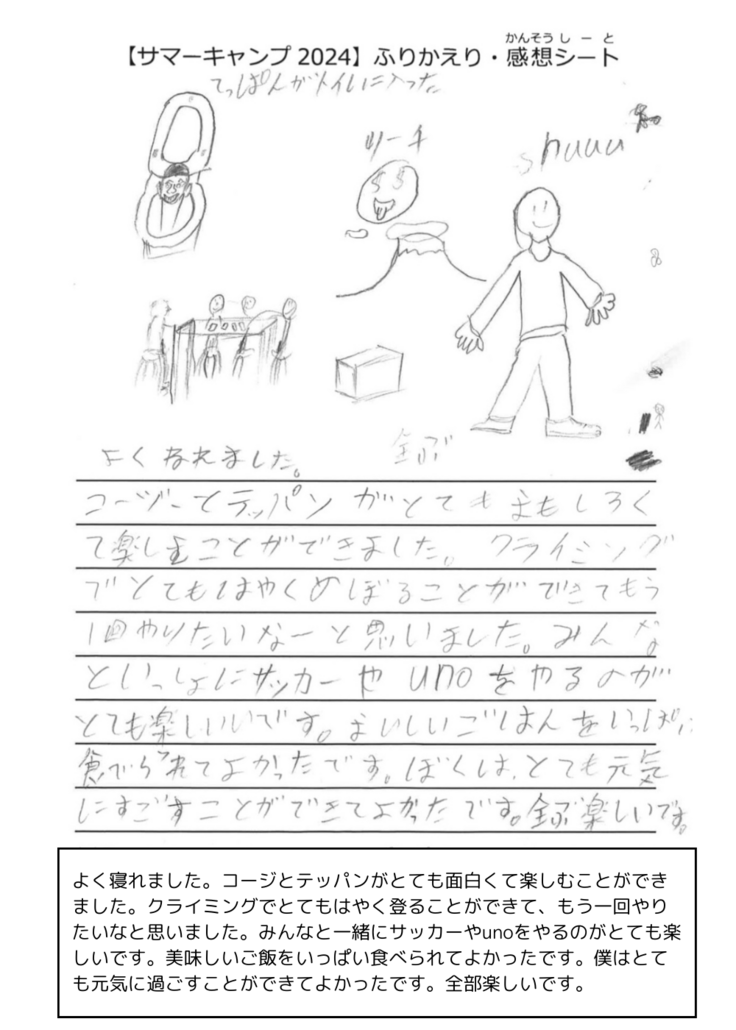 かんそうしーと
【サマーキャンプ 2024】ふりかえり・感想シート
てっぱんがトイレに入った
リーチ
shuuu
全ぶ
よくねれました。
コージーとテッパンがとてもおもしろく
て楽しむことができました。クライミング
でとてもはやくのぼることができてもう
1回やりたいなーと思いました。みんな
といっしょにサッカーやunoをやるのが
とても楽しいいです。おいしいごはんをいっぱい
食べられてよかったです。ぼくは、とても元気
にすごすことができてよかったです。全ぶ楽しいです。
よく寝れました。コージとテッパンがとても面白くて楽しむことができ
ました。クライミングでとてもはやく登ることができて、もう一回やり
たいなと思いました。みんなと一緒にサッカーやunoをやるのがとても楽
しいです。美味しいご飯をいっぱい食べられてよかったです。僕はとて
も元気に過ごすことができてよかったです。全部楽しいです。